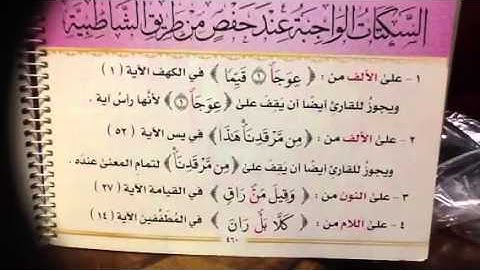 السَّكَتَاتُ الْوَاجِبَةُ عِنْدَ حَفْصٍ مِنْ طَرِيقِ الشَّاطِبِيَّةِ
١ - على الألف من : ﴿ عِوَجَاۜ ۝١ قَيِّمًا ﴾ في الكهف الآية (١)
ويجوزُ للقارئ أيضاً أن يَقِفَ على ﴿ عِوَجَاۜ ۝١ ﴾ لأنها رأسُ آية .
٢ - على الألف من : ﴿ مِن مَّرْقَدِنَاۜ هَٰذَا ﴾ في يس الآية (٥٢)
ويجوزُ للقارئ أيضاً أن يَقِفَ على ﴿ مِن مَّرْقَدِنَاۜ ﴾ لتمام المعنىٰ عنده .
٣ - على النون من : ﴿ وَقِيلَ مَنْۜ رَاقٍ ﴾ في القيامة الآية (٢٧)
٤ - على اللام من : ﴿ كَلَّا بَلْۜ رَانَ ﴾ في المُطَفِّفين الآية (١٤)
٤٦٠